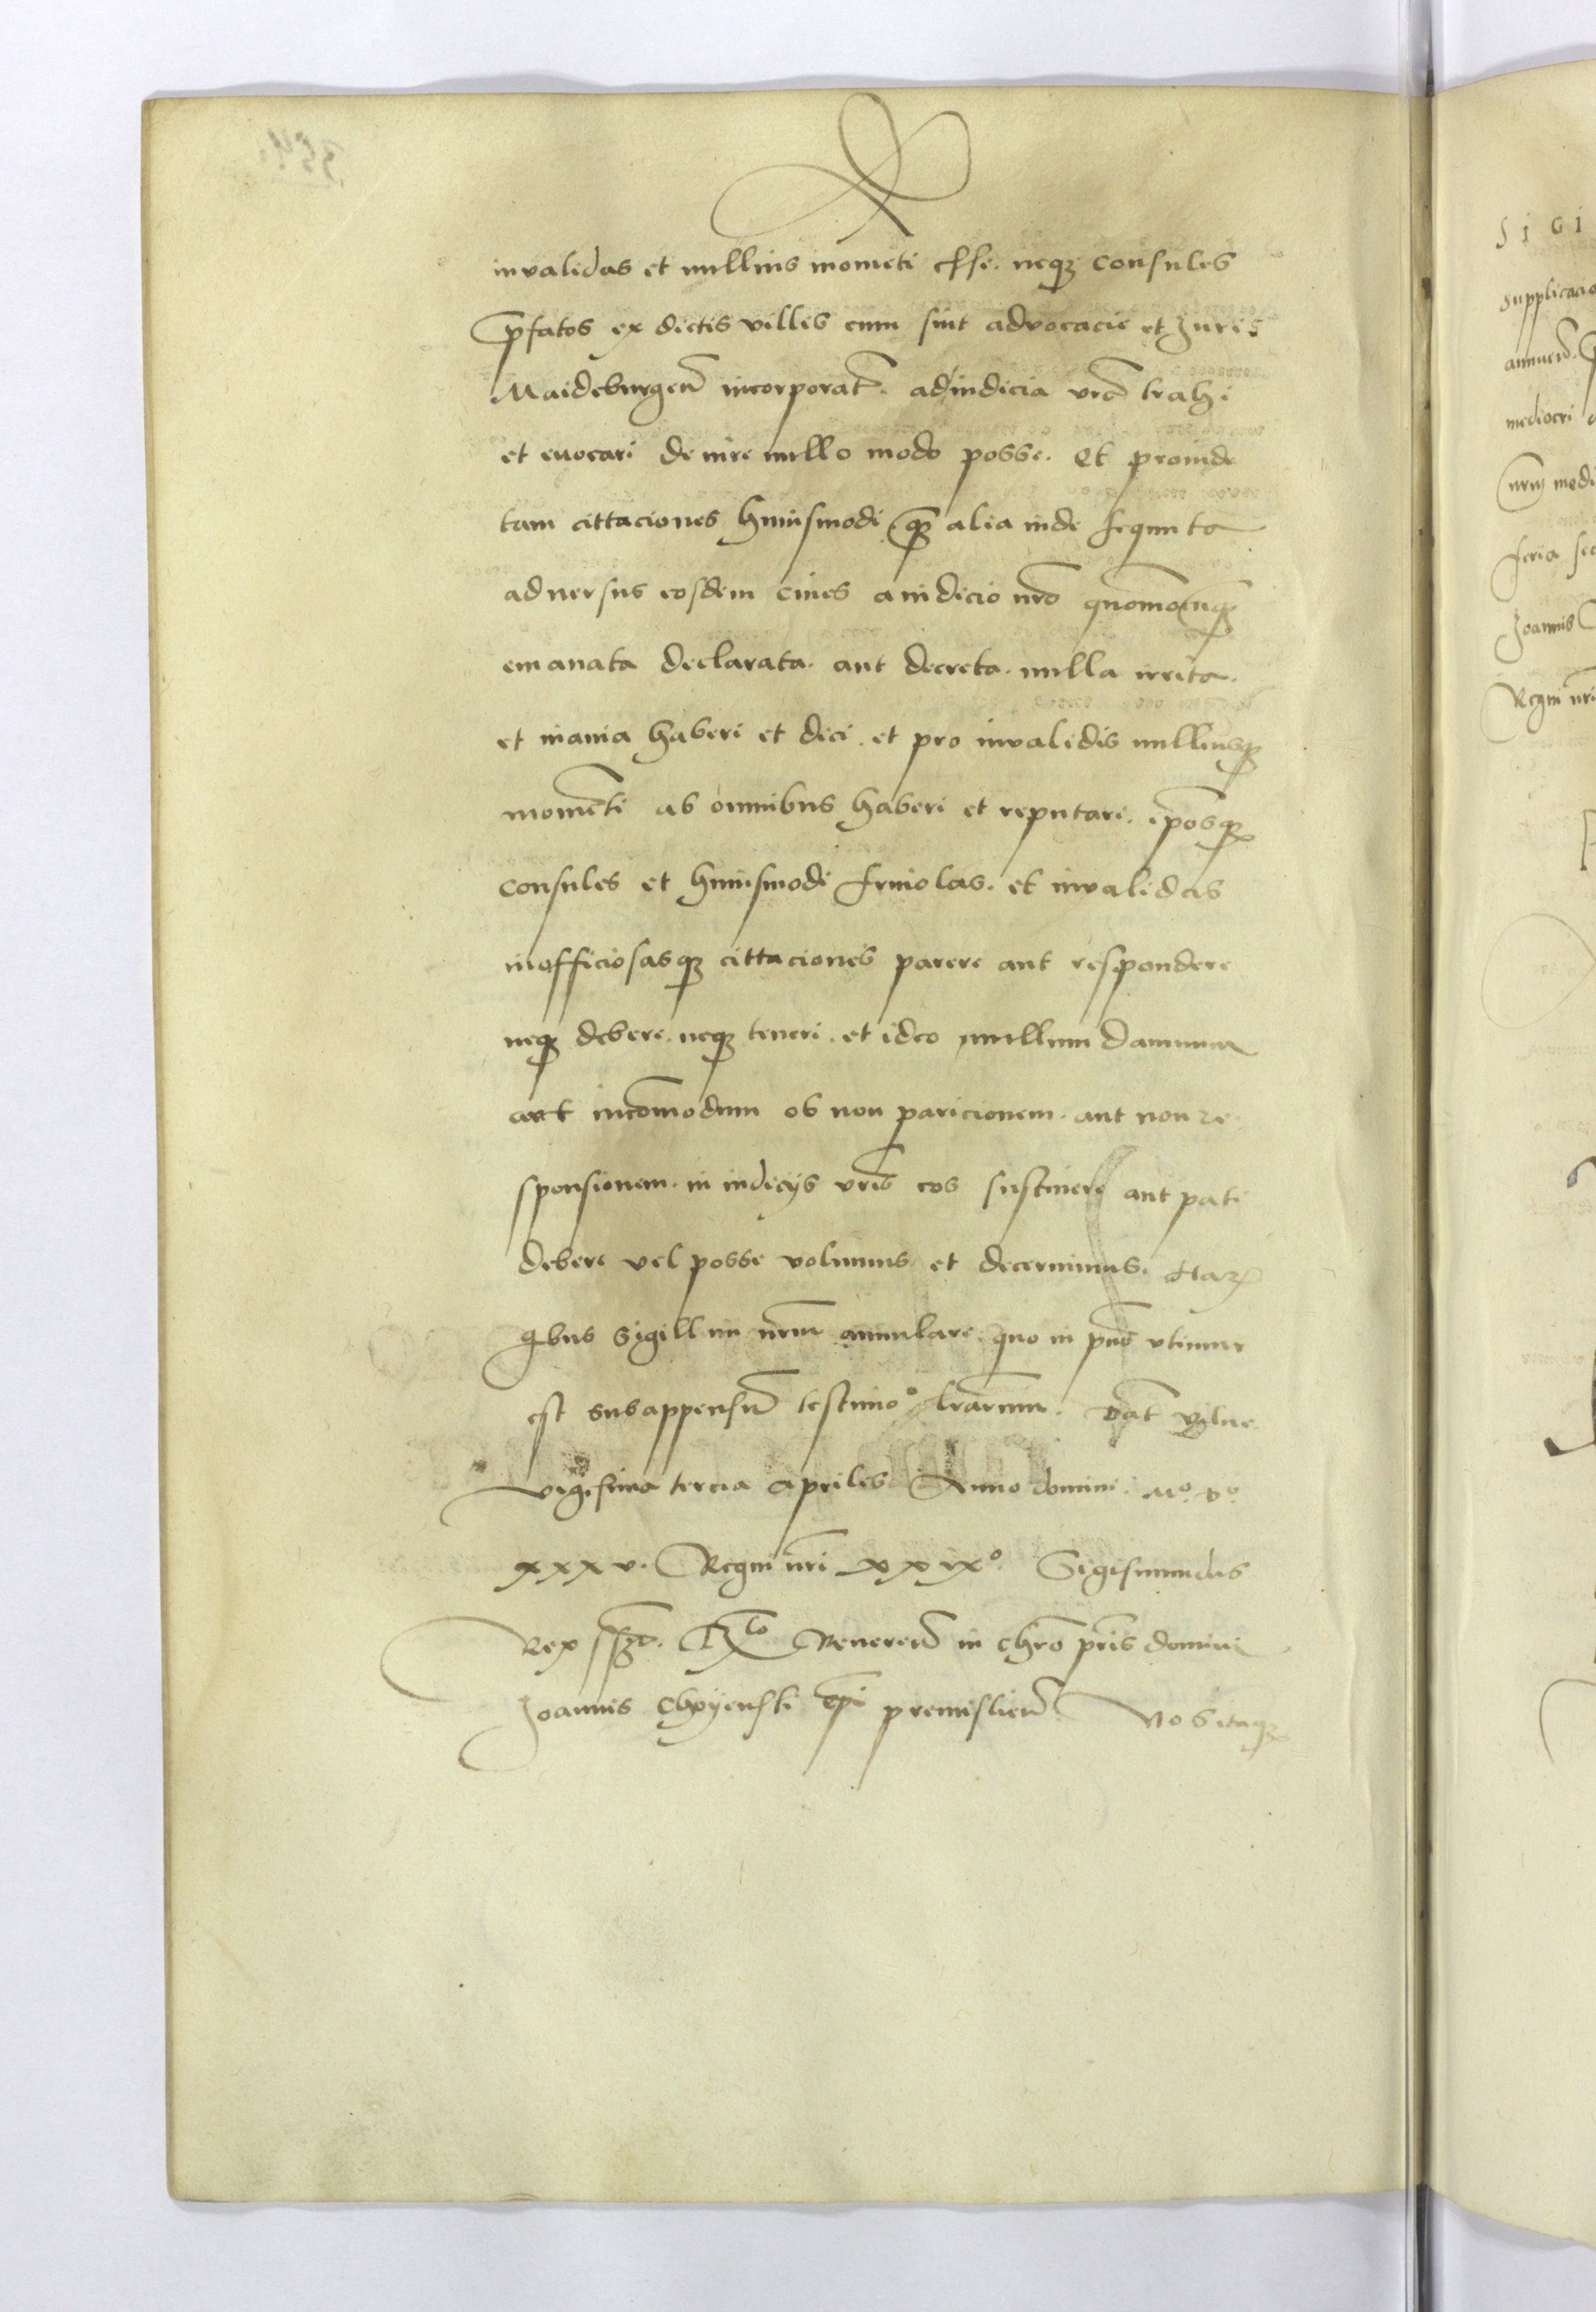 invalidas et nullius mometi esse. neqꝫ consules
p̄fatos ex dictis villis cum sint advocacie et Juris
Maideburgeñ incorporat̃. ad iudicia vr̃a trahi
et euocari de iure nullo modo posse. Et proinde
tam cittaciones huiusmodi q̃ꝫ alia inde sequuta
aduersus eosdem ciues a iudicio vr̃o quomo͂cuqꝫ
emanata declarata. aut decreta. nulla irrita.
et inania haberi et dici. et pro invalidis nulliusqꝫ
mome͂ti ab omnibus haberi et reputari. ip̃osqꝫ
consules et huiusmodi friuolas. et invalidas
inofficiosasqꝫ cittaciones parere aut respondere
neqꝫ debere. neqꝫ teneri. et ideo nullum damnum
aut inco͂modum ob non paricionem. aut non re
sponsionem. in iudicijs vr̃is eos sustinere aut pati
debere vel posse volumus et decernimus. Harꝫ
qbus sigillum nr̃m annulare. quo in pñs vtimur
est subappensũ testimoº lr̃arum. Dat̃ Vilne
vigesima tercia Aprilis Anno domini. Mº. Dº.
xxxv. Regni nr̃i xxixº. Sigismundus
Rex sst. Rºto Reuereñ in chr̃o pr̃is domini
Joannis Choyenski ep̃i premislieñ
Vos itaqꝫ
354.
SIGI
supplicacio
annueñ.
mediocri
nr̃m medi
feria sec
Joannis
Regni nr̃i